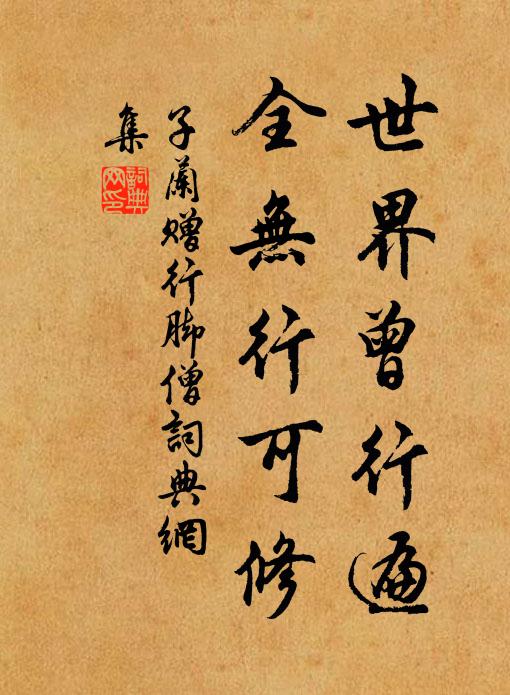 世界曾行遍
全無行可修
子蘭贈行脚僧詞典網
集
詞典
网印